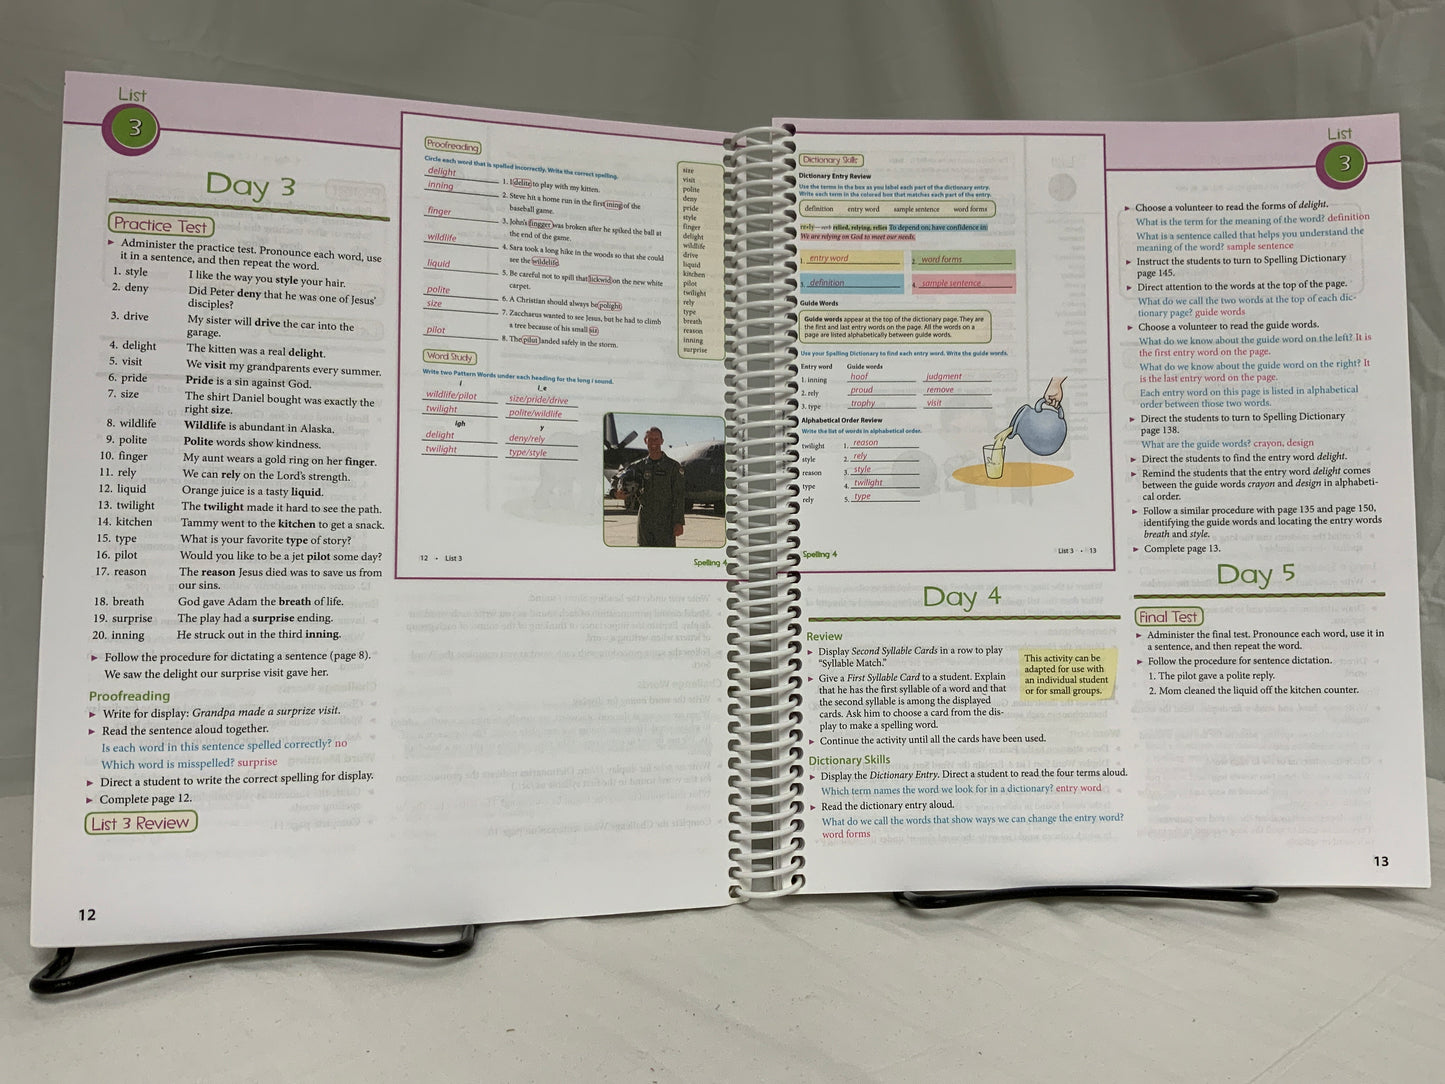 List
3
Day 3
Practice Test
► Administer the practice test. Pronounce each word, use
it in a sentence, and then repeat the word.
1. style I like the way you style your hair.
2. deny Did Peter deny that he was one of Jesus'
disciples?
3. drive My sister will drive the car into the
garage.
4. delight The kitten was a real delight.
5. visit We visit my grandparents every summer.
6. pride Pride is a sin against God.
7. size The shirt Daniel bought was exactly the
right size.
8. wildlife Wildlife is abundant in Alaska.
9. polite Polite words show kindness.
10. finger My aunt wears a gold ring on her finger.
11. rely We can rely on the Lord's strength.
12. liquid Orange juice is a tasty liquid.
13. twilight The twilight made it hard to see the path.
14. kitchen Tammy went to the kitchen to get a snack.
15. type What is your favorite type of story?
16. pilot Would you like to be a jet pilot some day?
17. reason The reason Jesus died was to save us from
our sins.
18. breath God gave Adam the breath of life.
19. surprise The play had a surprise ending.
20. inning He struck out in the third inning.
► Follow the procedure for dictating a sentence (page 8).
We saw the delight our surprise visit gave her.
Proofreading
► Write for display: Grandpa made a surprize visit.
► Read the sentence aloud together.
Is each word in this sentence spelled correctly? no
Which word is misspelled? surprise
► Direct a student to write the correct spelling for display.
► Complete page 12.
List 3 Review
12
Proofreading
Circle each word that is spelled incorrectly. Write the correct spelling.
delight 1. I delite to play with my kitten.
inning 2. Steve hit a home run in the first ining of the
baseball game.
finger 3. John's fingger was broken after he spiked the ball at
the end of the game.
wildlife 4. Sara took a long hike in the woods so that she could
see the wildelife.
liquid 5. Be careful not to spill that lickwid on the new white
carpet.
polite 6. A Christian should always be polight.
size 7. Zacchaeus wanted to see Jesus, but he had to climb
a tree because of his small siz.
pilot 8. The pilut landed safely in the storm.
size
visit
polite
deny
pride
style
finger
delight
wildlife
drive
liquid
kitchen
pilot
twilight
rely
type
breath
reason
inning
surprise
Word Study
Write two Pattern Words under each heading for the long i sound.
i i_e
wildlife/pilot size/pride/drive
twilight polite/wildlife
igh y
delight deny/rely
twilight type/style
12 • List 3
Spelling 4
Dictionary Skills
Dictionary Entry Review
Use the terms in the box as you label each part of the dictionary entry.
Write each term in the colored box that matches each part of the entry.
definition entry word sample sentence word forms
rely—verb relied, relying, relies To depend on; have confidence in:
We are relying on God to meet our needs.
1. entry word 2. word forms
3. definition 4. sample sentence
Guide Words
Guide words appear at the top of the dictionary page. They are
the first and last entry words on the page. All the words on a
page are listed alphabetically between guide words.
Use your Spelling Dictionary to find each entry word. Write the guide words.
Entry word Guide words
1. inning hoof judgment
2. rely proud remove
3. type trophy visit
Alphabetical Order Review
Write the list of words in alphabetical order.
twilight 1. reason
style 2. rely
reason 3. style
type 4. twilight
rely 5. type
Spelling 4
List 3 • 13
Day 4
Review
► Display Second Syllable Cards in a row to play
"Syllable Match."
► Give a First Syllable Card to a student. Explain
that he has the first syllable of a word and that
the second syllable is among the displayed
cards. Ask him to choose a card from the dis-
play to make a spelling word.
► Continue the activity until all the cards have been used.
This activity can be
adapted for use with
an individual student
or for small groups.
Dictionary Skills
► Display the Dictionary Entry. Direct a student to read the four terms aloud.
Which term names the word we look for in a dictionary? entry word
► Read the dictionary entry aloud.
What do we call the words that show ways we can change the entry word?
word forms
List
3
► Choose a volunteer to read the forms of delight.
What is the term for the meaning of the word? definition
What is a sentence called that helps you understand the
meaning of the word? sample sentence
► Instruct the students to turn to Spelling Dictionary
page 145.
► Direct attention to the words at the top of the page.
What do we call the two words at the top of each dic-
tionary page? guide words
► Choose a volunteer to read the guide words.
What do we know about the guide word on the left? It is
the first entry word on the page.
What do we know about the guide word on the right? It
is the last entry word on the page.
Each entry word on this page is listed in alphabetical
order between those two words.
► Direct the students to turn to Spelling Dictionary
page 138.
What are the guide words? crayon, design
► Direct the students to find the entry word delight.
► Remind the students that the entry word delight comes
between the guide words crayon and design in alphabeti-
cal order.
► Follow a similar procedure with page 135 and page 150,
identifying the guide words and locating the entry words
breath and style.
► Complete page 13.
Day 5
Final Test
► Administer the final test. Pronounce each word, use it in
a sentence, and then repeat the word.
► Follow the procedure for sentence dictation.
1. The pilot gave a polite reply.
2. Mom cleaned the liquid off the kitchen counter.
13